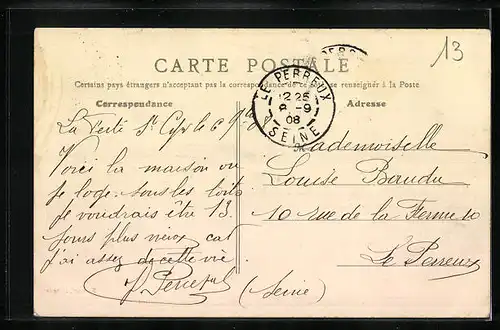 13
CARTE POSTALE
Certains pays étrangers n'acceptant pas la correspondance de ce côté se renseigner à la Poste
Correspondance
Adresse
LE PERREUX
12 25
8 -9
08
SEINE
La Ferté St Cyr le 6
Voici la maison ou
je loge sous les toits
je voudrais être 13
jours plus vieux car
j'ai assez de cette vie
Mademoiselle
Louise Baudu
10 rue de la Ferme 10
Le Perreux
(Seine)